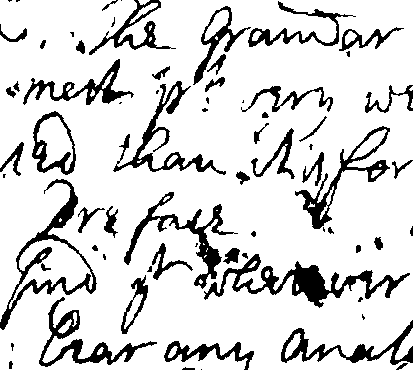 . The Grandar
ment pn very we
red than it is for
Preface.
find yt wherever
bear any anal